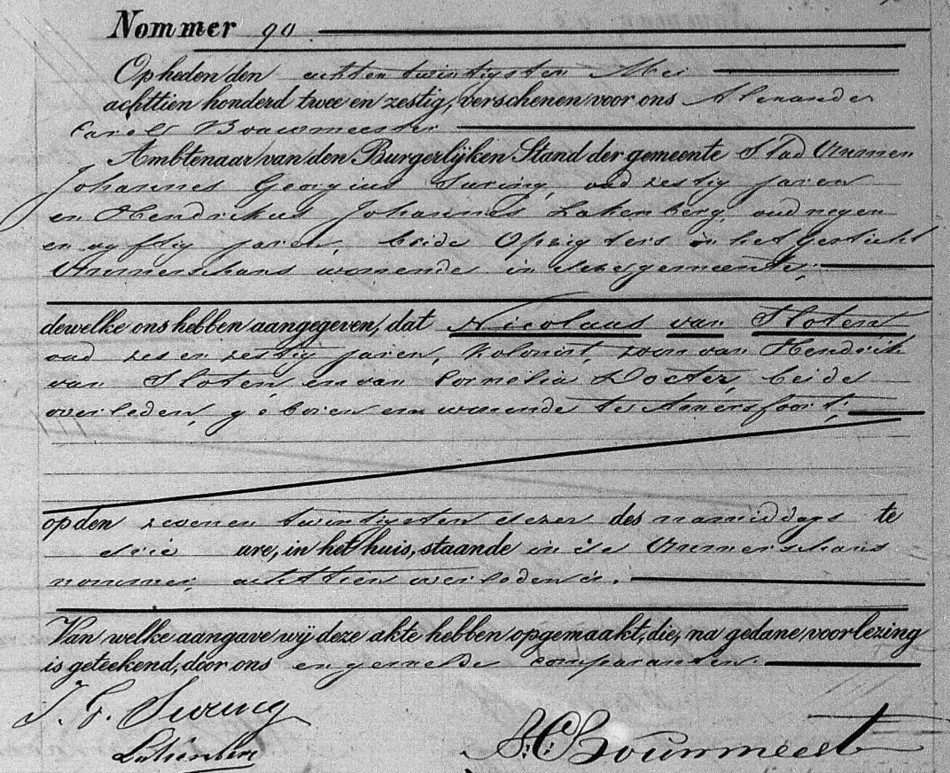 Nommer 90
Op heden den achtentwintigsten Mei
achttien honderd twee en zestig, verschenen voor ons Alexander
Carel Bouwmeester
Ambtenaar van den Burgerlijken Stand der gemeente Stad Ommen
Johannes Georgius Suring, oud zestig jaren
en Hendrikus Johannes Lakenberg, oud negen
en vyftig jaren, beide Opzigters in het Gesticht
Ommerschans wonende in deze gemeente;
dewelke ons hebben aangegeven, dat Nicolaas van Sloten
oud zes en zestig jaren, kolonist, zoon van Hendrik
van Sloten, en van Cornelia Docter, beide
overleden, geboren en wonende te Amersfoort;
op den zevenen twintigsten dezer des namiddags te
drie ure, in het huis, staande in de Ommerschans
nommer achttien overleden is.
Van welke aangave wij deze akte hebben opgemaakt, die, na gedane voorlezing
is geteekend, door ons en gemelde comparanten.
J. G. Suring
A.C. Bouwmeest